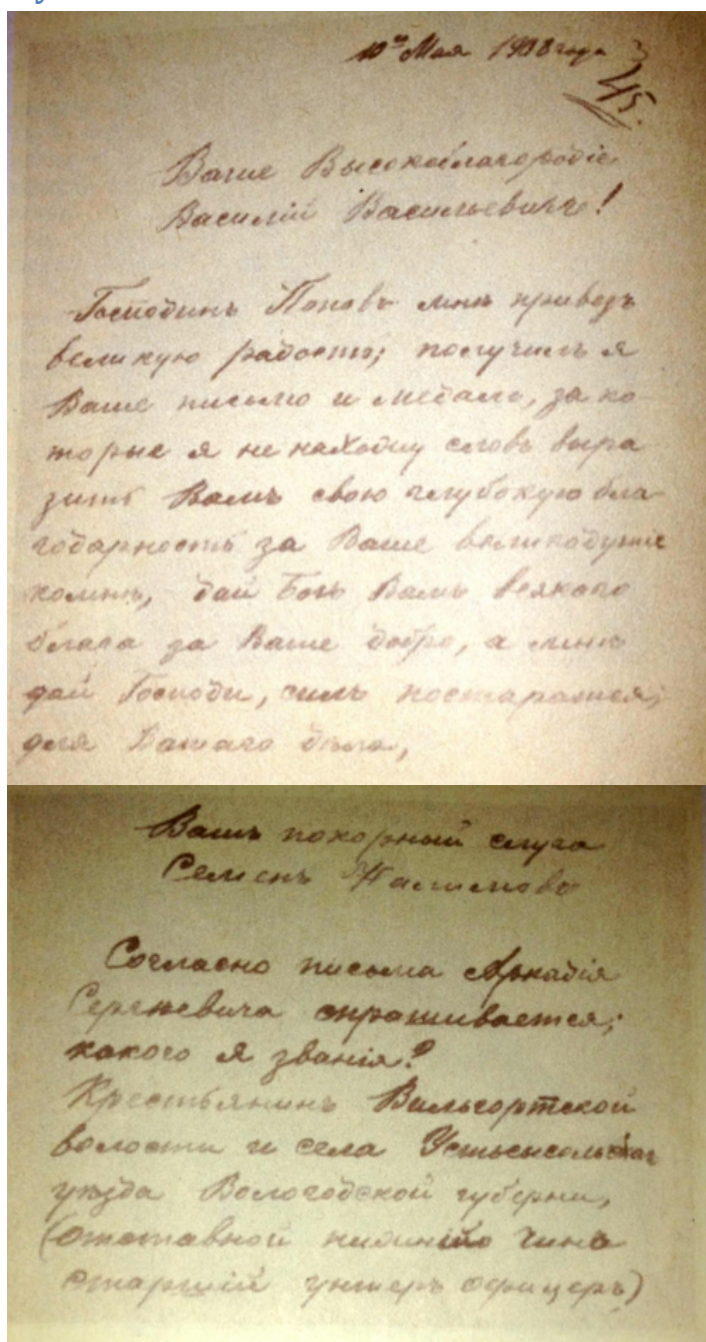 10го Мая 1908 года
45.
Ваше Высокоблагородіе
Василій Васильевичъ!
Господинъ Поповъ мнѣ привезъ
великую радость; получилъ я
Ваше письмо и медаль, за ко-
торые я не нахожу словъ выра
зить Вамъ свою глубокую бла-
годарность за Ваше великодушіе
комнѣ, дай Богъ Вамъ всякаго
блага за Ваше добро, а мнѣ
дай Господи, силъ постараться;
для Вашаго дѣла,
Вашъ покорный слуга
Семенъ Налимовъ
Согласно письма Аркадія
Сергѣевича спрашивается;
какого я званія?
Крестьянинъ Вильгортской
волости и села Устьсысольскаг
уѣзда Вологодской губерни,
(отставной нижнійго чина
старшій унтеръ офицеръ)